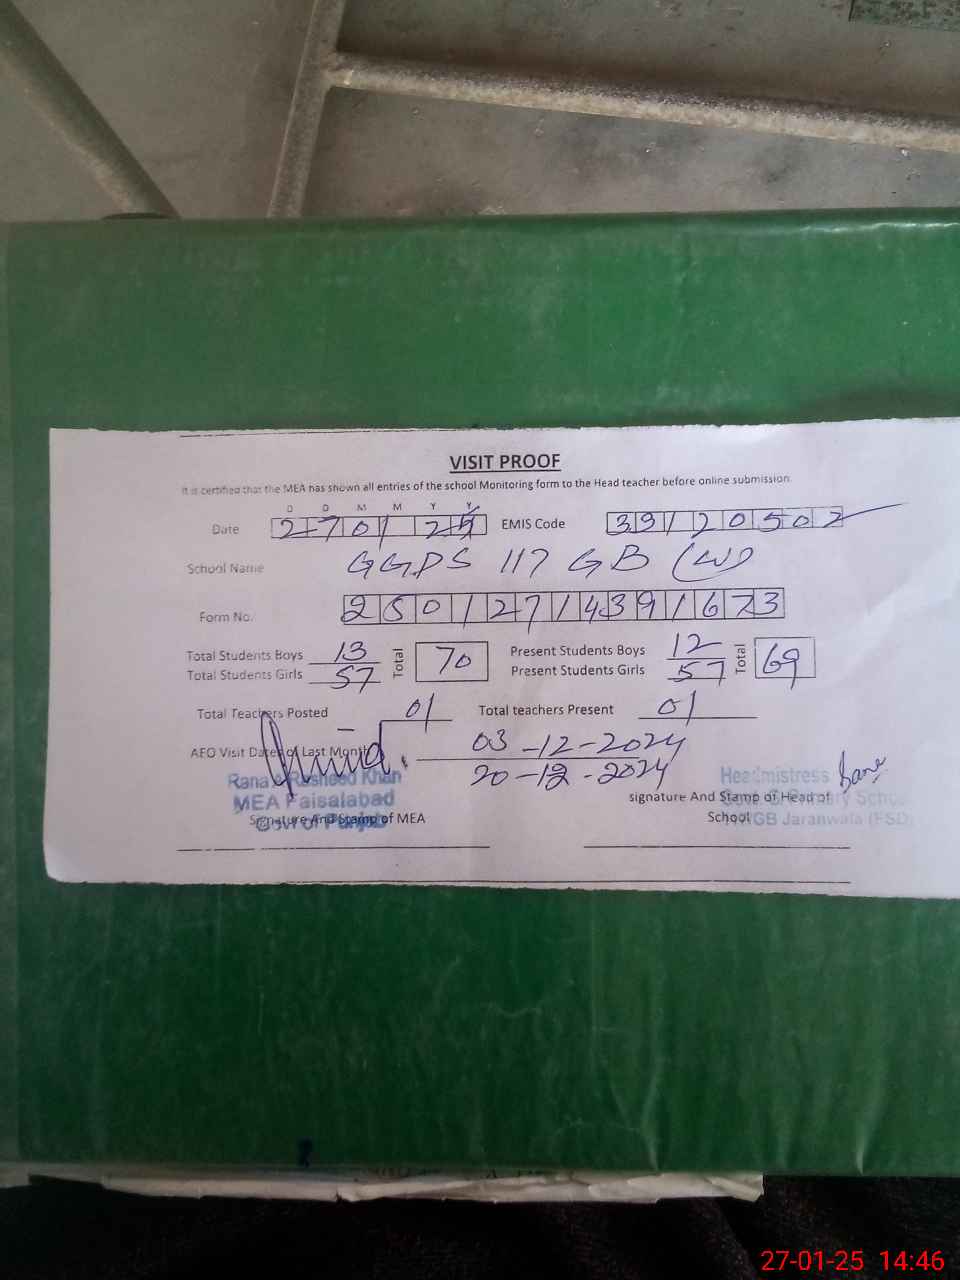 VISIT PROOF
It is certified that the MEA has shown all entries of the school Monitoring form to the Head teacher before online submission.
D D M M Y Y
Date 270125 EMIS Code 39120502
School Name GGPS 117 GB (W)
Form No. 25012714391673
Total Students Boys 13 Total 70 Present Students Boys 12 Total 69
Total Students Girls 57 Present Students Girls 57
Total Teachers Posted 01 Total teachers Present 01
AEO Visit Dates of Last Month 03-12-2024
20-12-2024
Rana A Rasheed Khan
MEA Faisalabad
Govt of Punjab
Signature And Stamp of MEA
Headmistress
signature And Stamp of Head of
School
GB Jaranwala (FSD)
27-01-25 14:46